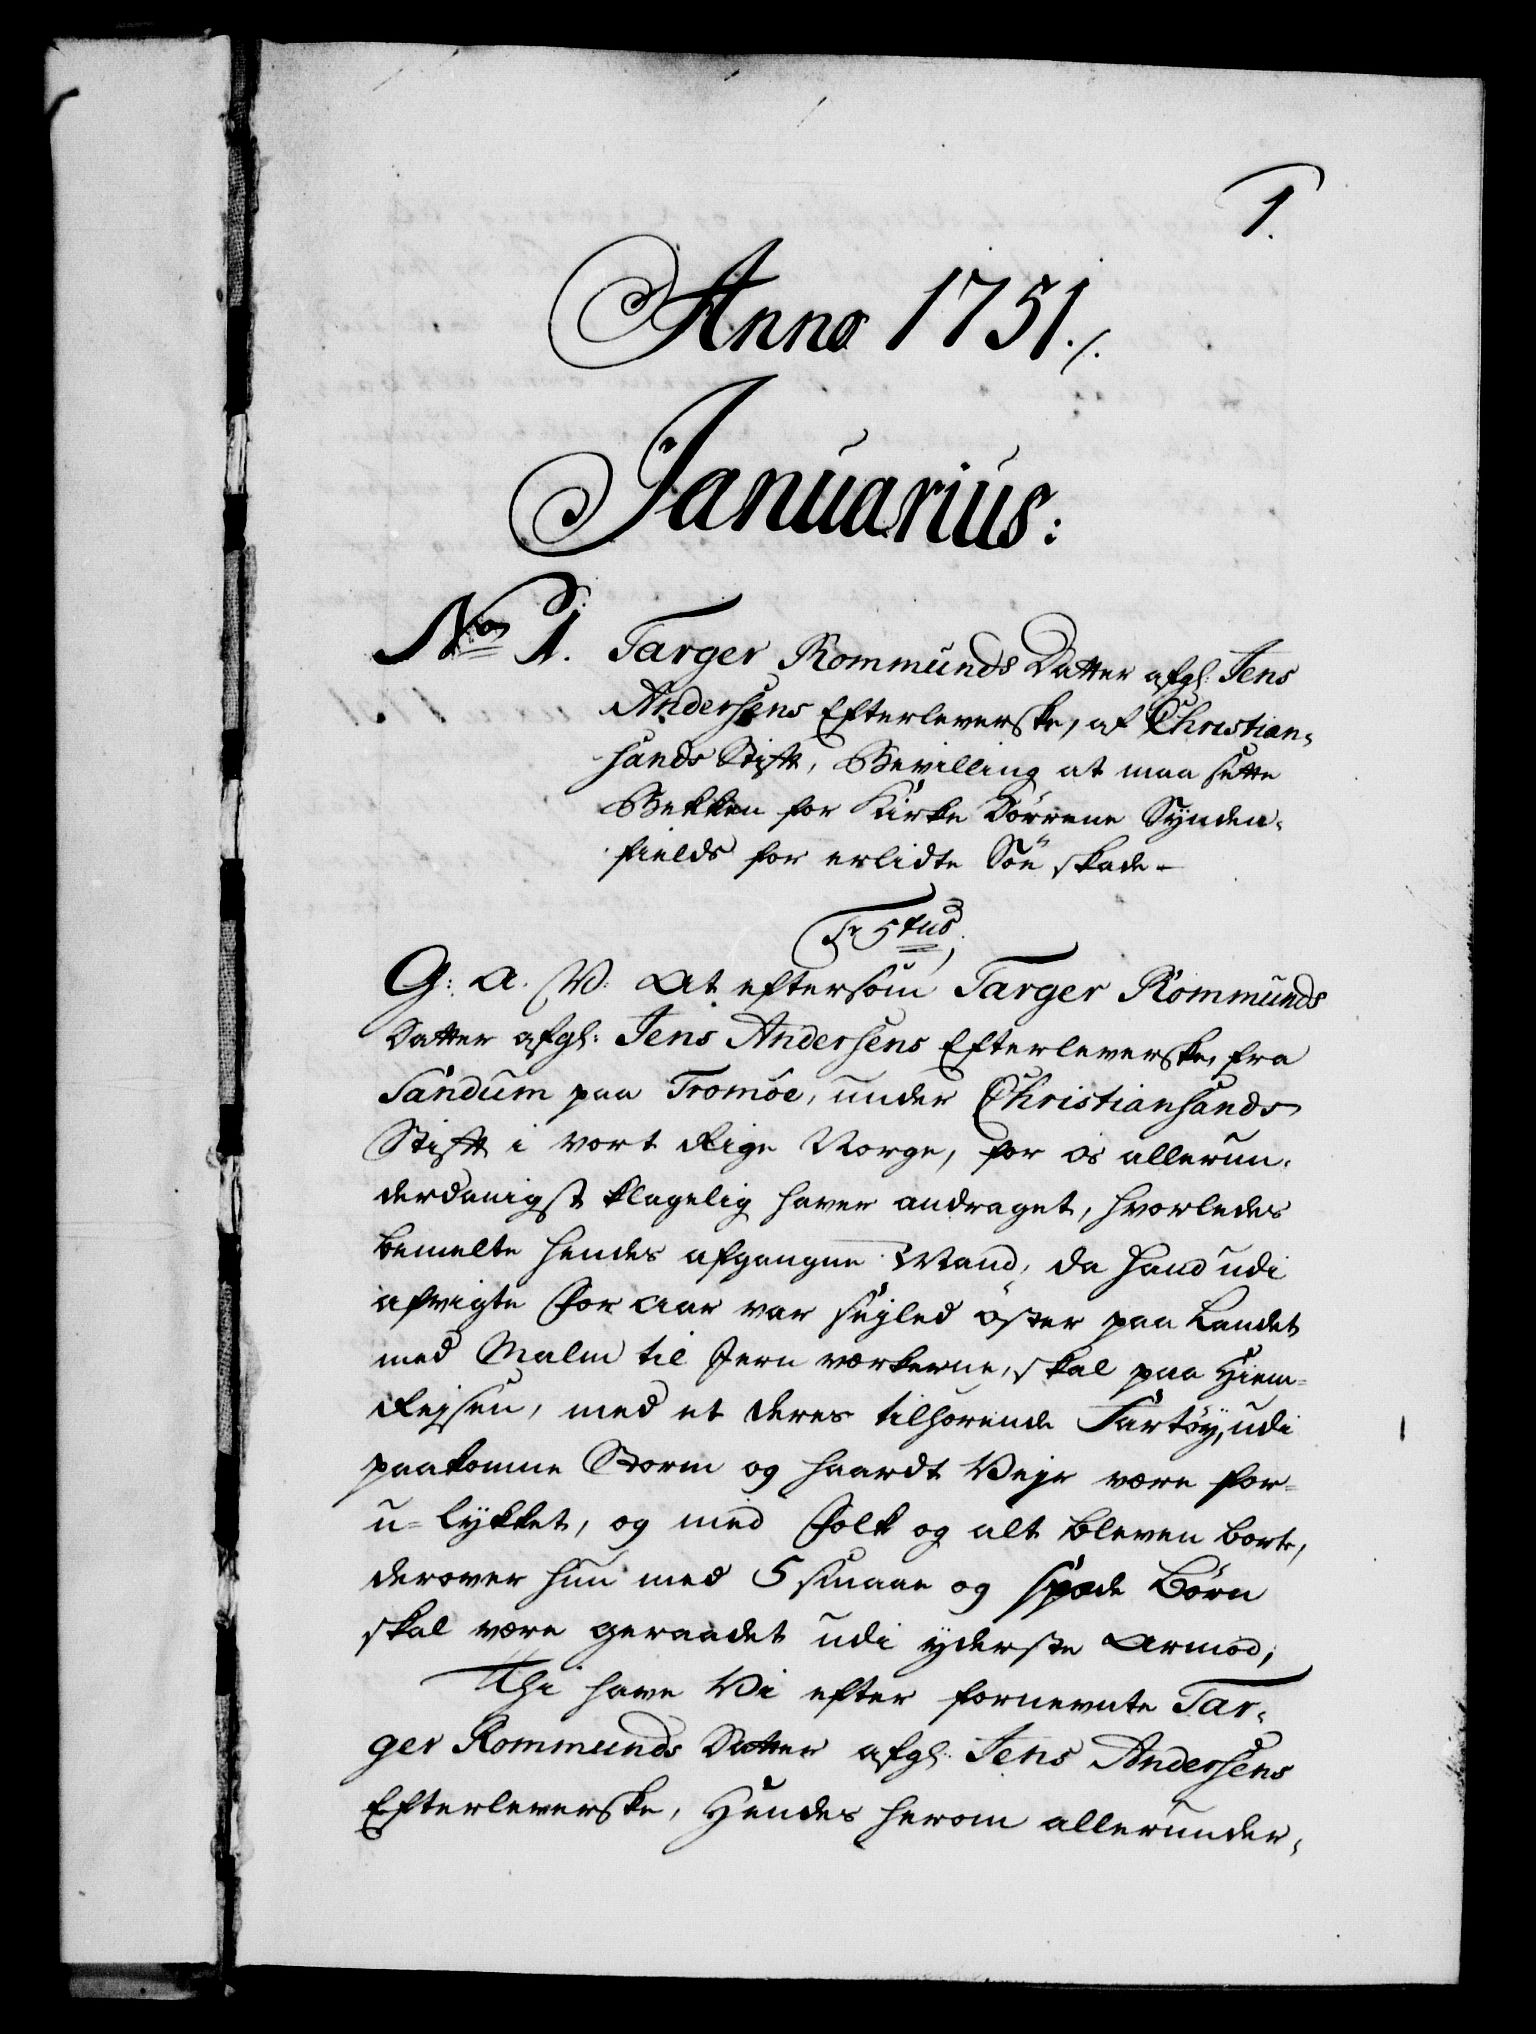 1.
Anno 1751./.
Januarius:
No 1. Targer Rommunds Datter afgl: Jens
Andersens Efterleverske, af Christian-
sands Stift, Bevilling at maa sætte
Bekken for Kirke Dørrene Synden-
fields for erlidte Søe skade-
Fr 5tus.
G: A. V: At eftersom Targer Rommunds
Datter afgl: Jens Andersens Efterleverske, fra
Sandum paa Tromöe, under Christiansands
Stift i vort Rige Norge, for os allerun-
derdanigst klagelig haver andraget, hvorledes
bemelte hendes afgangne Mand, da hand udi
afvigte For Aar var seyled öster paa Landet
med Malm til Jern værkerne, skal paa Hiem-
Reysen, med et deres tilhørende Fartöy, udi
paakomne Storm og haardt Vejr være for-
u-lykket, og med Folk og alt bleven bort,
derover hun med 5 smaae og spæde Börn
skal være geraadet udi yderste Armod;
Thi have Vi efter fornevnte Tar-
ger Rommunds Datter afgl: Jens Andersens
Efterleverske, Hendes herom allerunder-